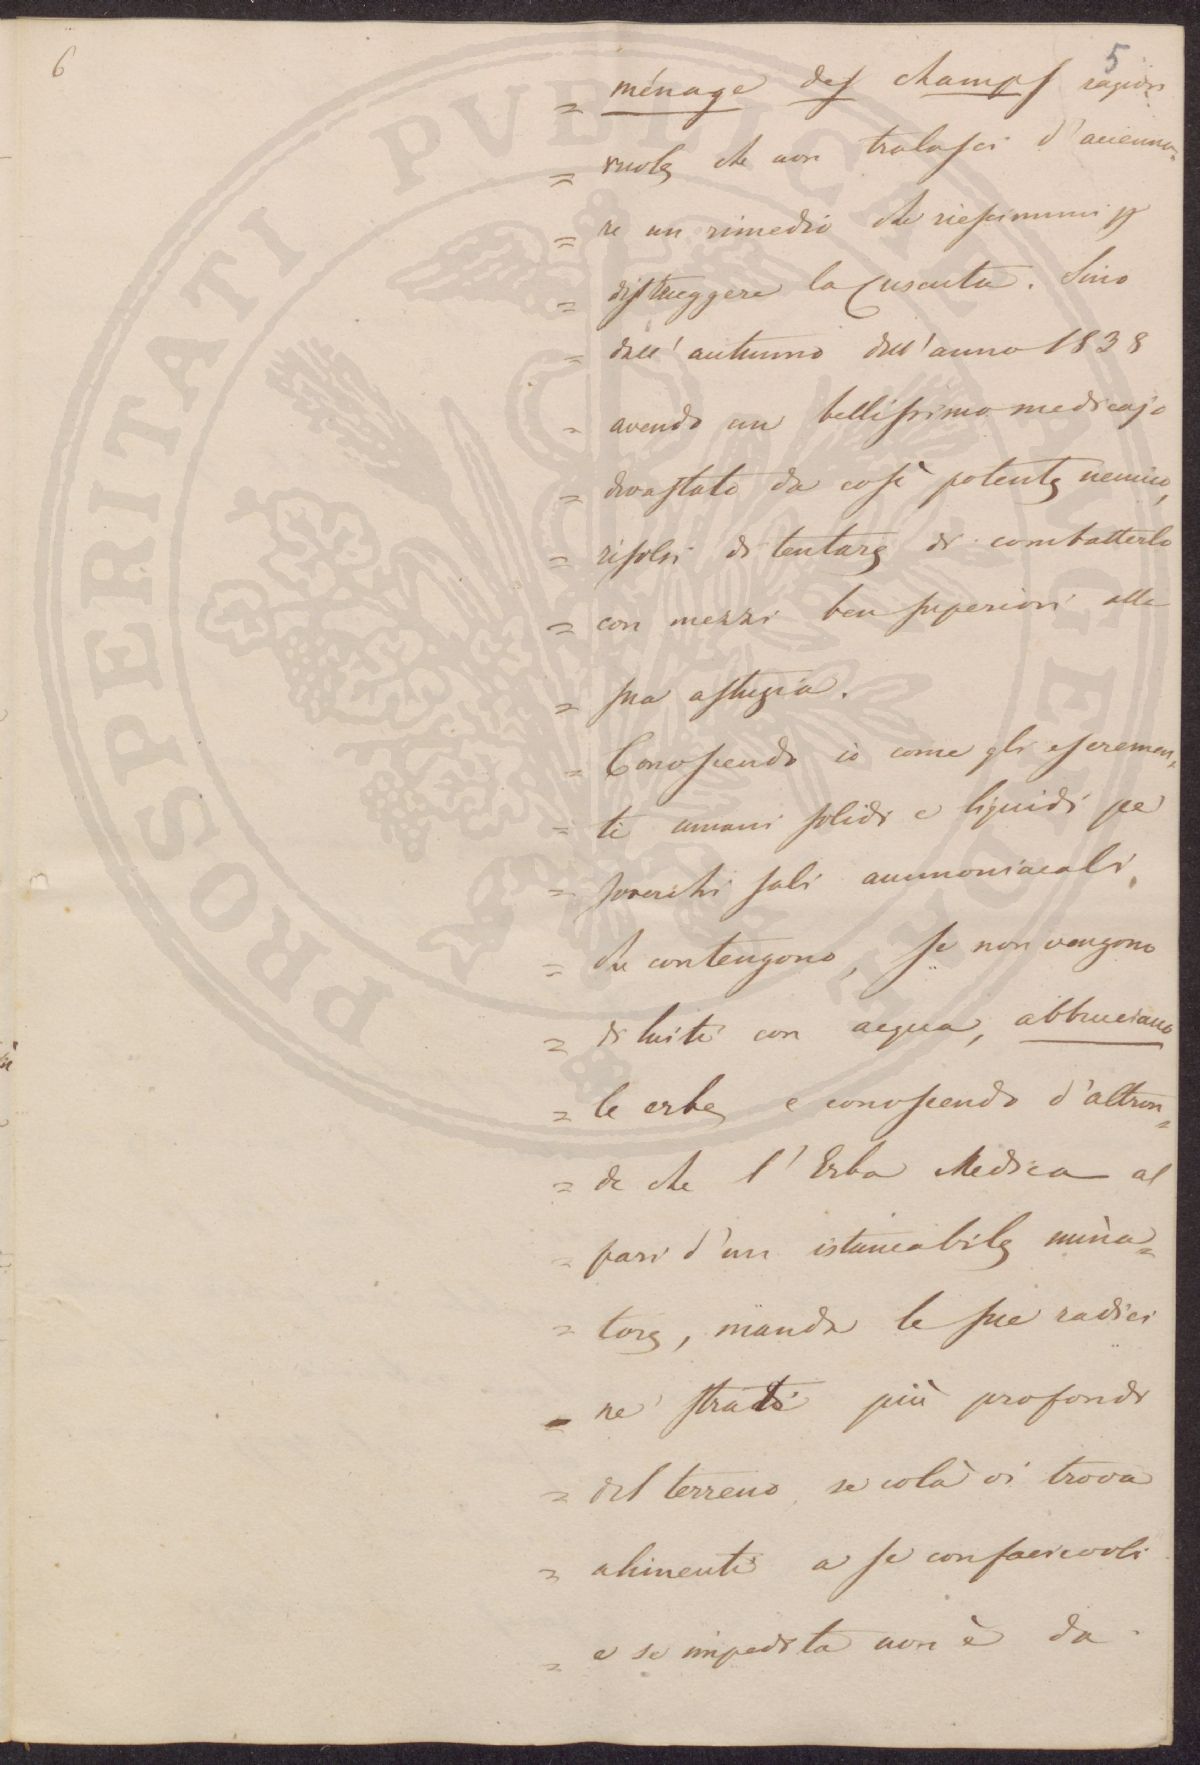 6
5
= ménage des champs ragion
= vuole che non tralasci d'accenna=
= re un rimedio che riescimmi p
= distruggere la Cuscuta. Sino
= dall' autunno dell'anno 1838
= avendo un bellissimo medicajo
= devastato da così potente nemico,
= risolsi di tentare di combatterlo
= con mezzi ben superiori alla
= sua astuzia.
= Conoscendo io come gli escremen=
= ti umani solidi e liquidi pe'
= soverchi sali ammoniacali,
= che contengono, se non vengono
= diluiti con acqua, abbruciano
= le erbe e conoscendo d'altron=
= de che l'Erba Medica al
= pari d'un istancabile mina=
= tore, manda le sue radici
= ne' strati più profondi
= del terreno se colà vi trova
= alimenti a se confacevoli
= e se impedita non è da
PROSPERITATI PUBLICAE AUGENDAE